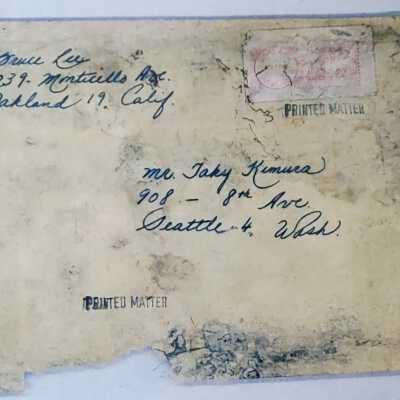 Bruce Lee
039. Monticello Ave.
Oakland 19, Calif.
PRINTED MATTER
Mr. Taky Kimura
908 - 8th Ave.
Seattle 4, Wash.
PRINTED MATTER